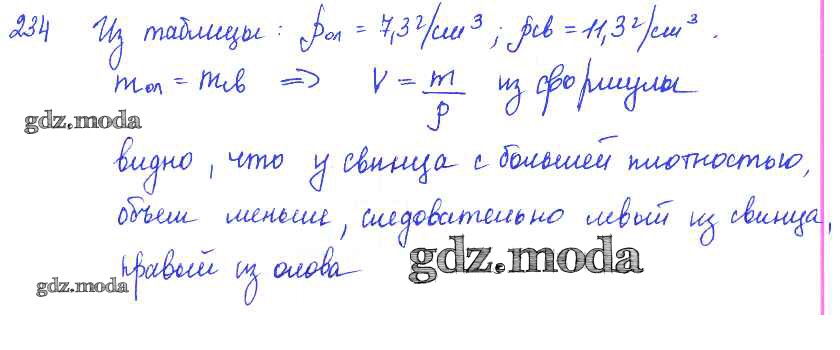 234 Из таблицы: ρол = 7,3 г/см³; ρсв = 11,3 г/см³.
mол = mсв => V = m/ρ из формулы
gdz.moda
видно, что у свинца с большей плотностью,
объем меньше, следовательно левый из свинца,
правый из олова
gdz.moda
gdz.moda